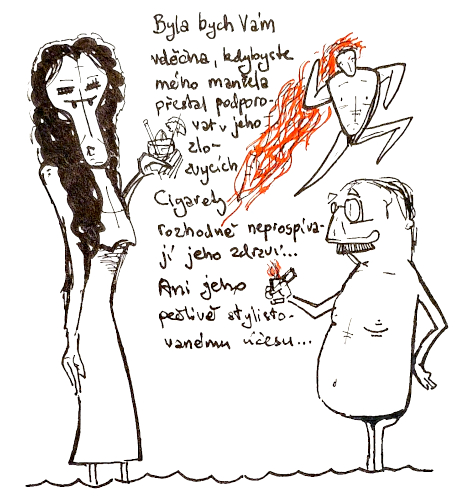 Byla bych Vám
vděčna, kdybyste
mého manžela
přestal podporo-
vat v jeho
zlo-
zvycích
Cigarety
rozhodně neprospíva-
jí jeho zdraví...
Ani jeho
pečlivě stylisto-
vanému účesu...